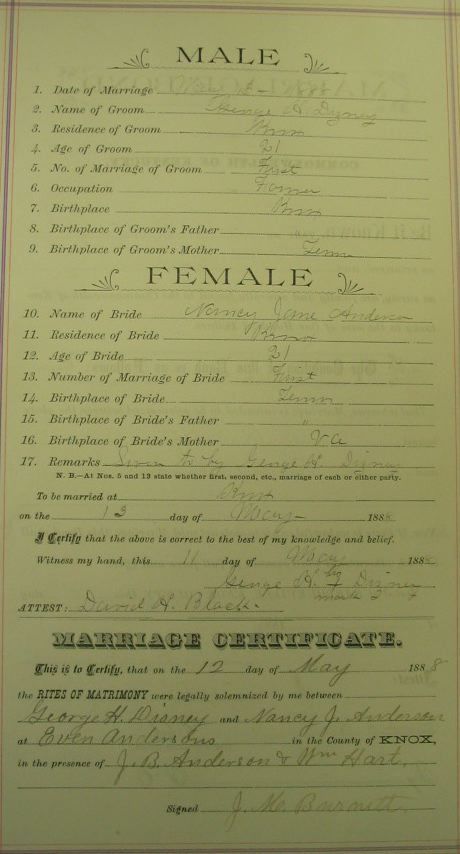 MALE
1. Date of Marriage May 13
2. Name of Groom George H. Disney
3. Residence of Groom Knox
4. Age of Groom 21
5. No. of Marriage of Groom First
6. Occupation Farmer
7. Birthplace Knox
8. Birthplace of Groom's Father
9. Birthplace of Groom's Mother Tenn
FEMALE
10. Name of Bride Nancy Jane Anderson
11. Residence of Bride Knox
12. Age of Bride 21
13. Number of Marriage of Bride First
14. Birthplace of Bride Tenn
15. Birthplace of Bride's Father "
16. Birthplace of Bride's Mother Va
17. Remarks Sworn to by George H. Disney
N. B.—At Nos. 5 and 13 state whether first, second, etc., marriage of each or either party.
To be married at Knox
on the 13 day of May 188
I Certify that the above is correct to the best of my knowledge and belief.
Witness my hand, this 11 day of May 188
George H. Disney
mark
ATTEST: David H. Black.
MARRIAGE CERTIFICATE.
This is to Certify, that on the 12 day of May 1888
the RITES OF MATRIMONY were legally solemnized by me between
George H. Disney and Nancy J. Anderson
at Even Andersons in the County of KNOX,
in the presence of J. B. Anderson & Wm Hart.
Signed J. M. Burnett